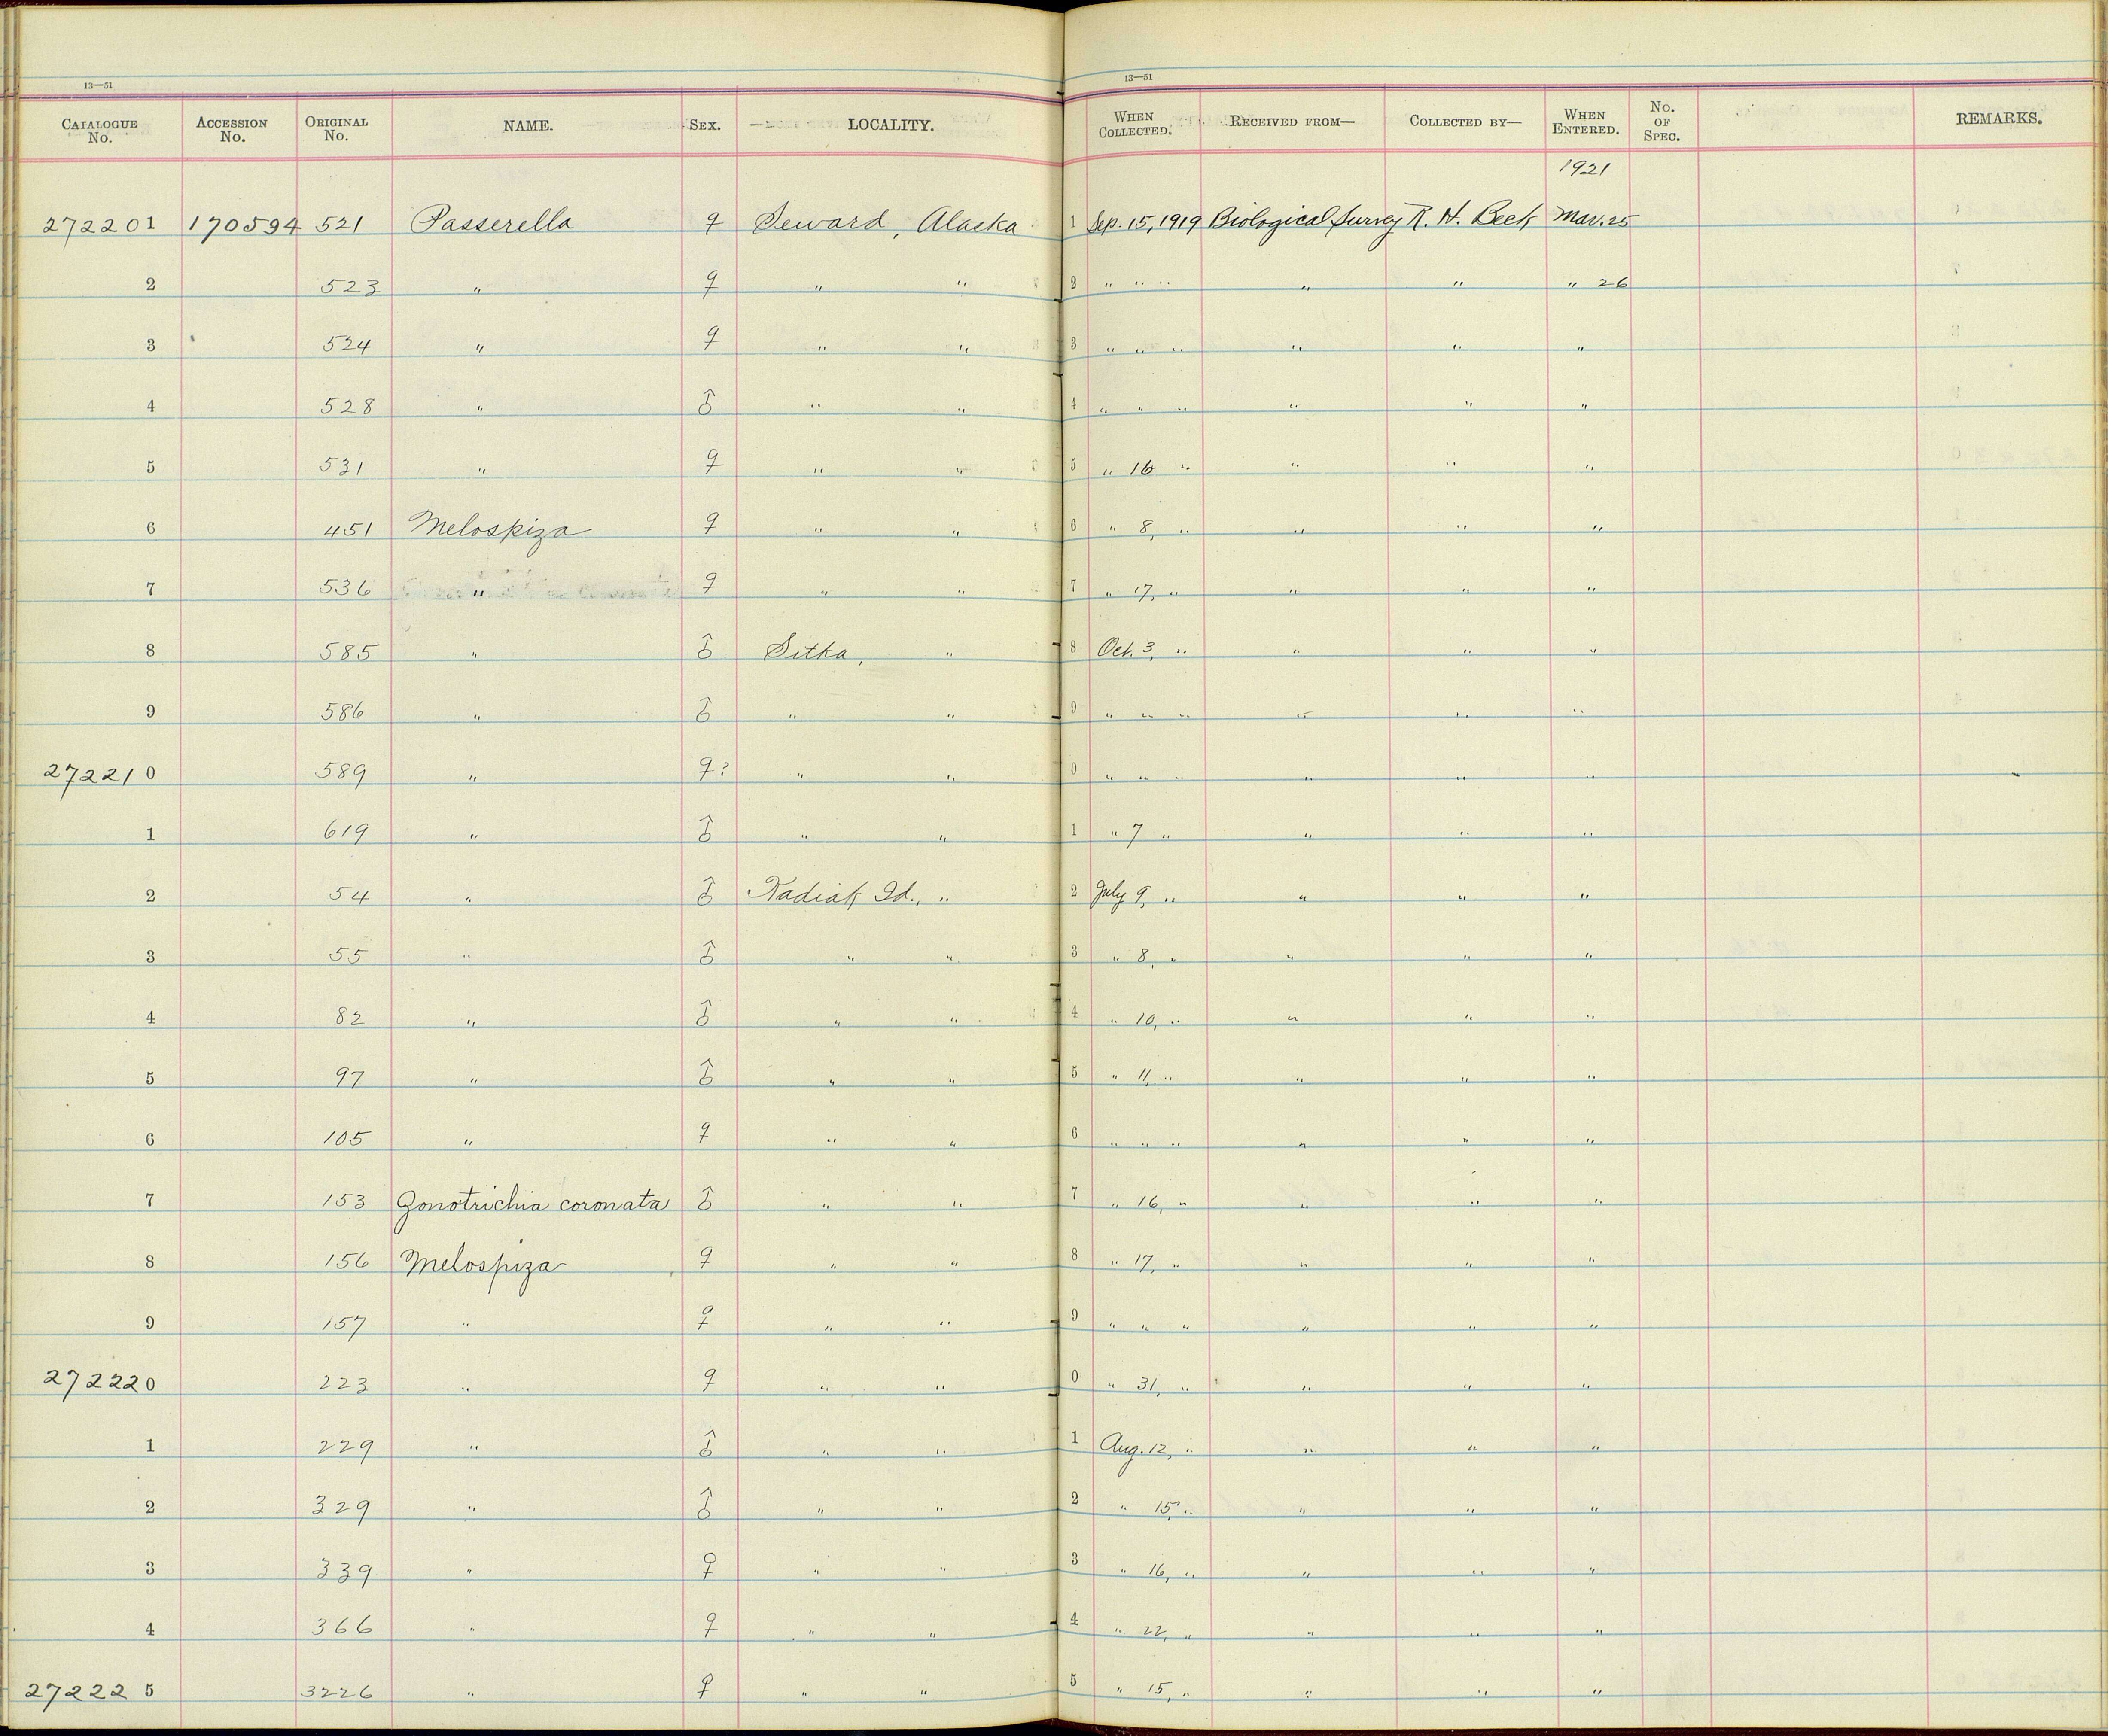 13—51 13—51
CATALOGUE No. ACCESSION No. ORIGINAL No. NAME. SEX. LOCALITY. WHEN COLLECTED. RECEIVED FROM— COLLECTED BY— WHEN ENTERED. No. OF SPEC. REMARKS.
1921
272201 170594 521 Passerella ♀ Seward, Alaska 1 Sep. 15, 1919 Biological Survey R. H. Beck Mar. 25
2 523 " ♀ " " 2 " " " " " " 26
3 524 " ♀ " " 3 " " " " " "
4 528 " ♂ " " 4 " " " " " "
5 531 " ♀ " " 5 " 16 " " " "
6 451 Melospiza ♀ " " 6 " 8, " " " "
7 536 " ♀ " " 7 " 17, " " " "
8 585 " ♂ Sitka, " 8 Oct. 3, " " " "
9 586 " ♂ " " 9 " " " " " "
272210 589 " ♀? " " 0 " " " " " "
1 619 " ♂ " " 1 " 7 " " " "
2 54 " ♂ Kadiak Id., " 2 July 9, " " " "
3 55 " ♂ " " 3 " 8, " " " "
4 82 " ♂ " " 4 " 10, " " " "
5 97 " ♂ " " 5 " 11, " " " "
6 105 " ♀ " " 6 " " " " " "
7 153 Zonotrichia coronata ♂ " " 7 " 16, " " " "
8 156 Melospiza ♀ " " 8 " 17, " " " "
9 157 " ♀ " " 9 " " " " " "
272220 223 " ♀ " " 0 " 31, " " " "
1 229 " ♂ " " 1 Aug. 12, " " " "
2 329 " ♂ " " 2 " 15, " " " "
3 339 " ♀ " " 3 " 16, " " " "
4 366 " ♀ " " 4 " 22, " " " "
272225 3226 " ♀ " " 5 " 15, " " " "